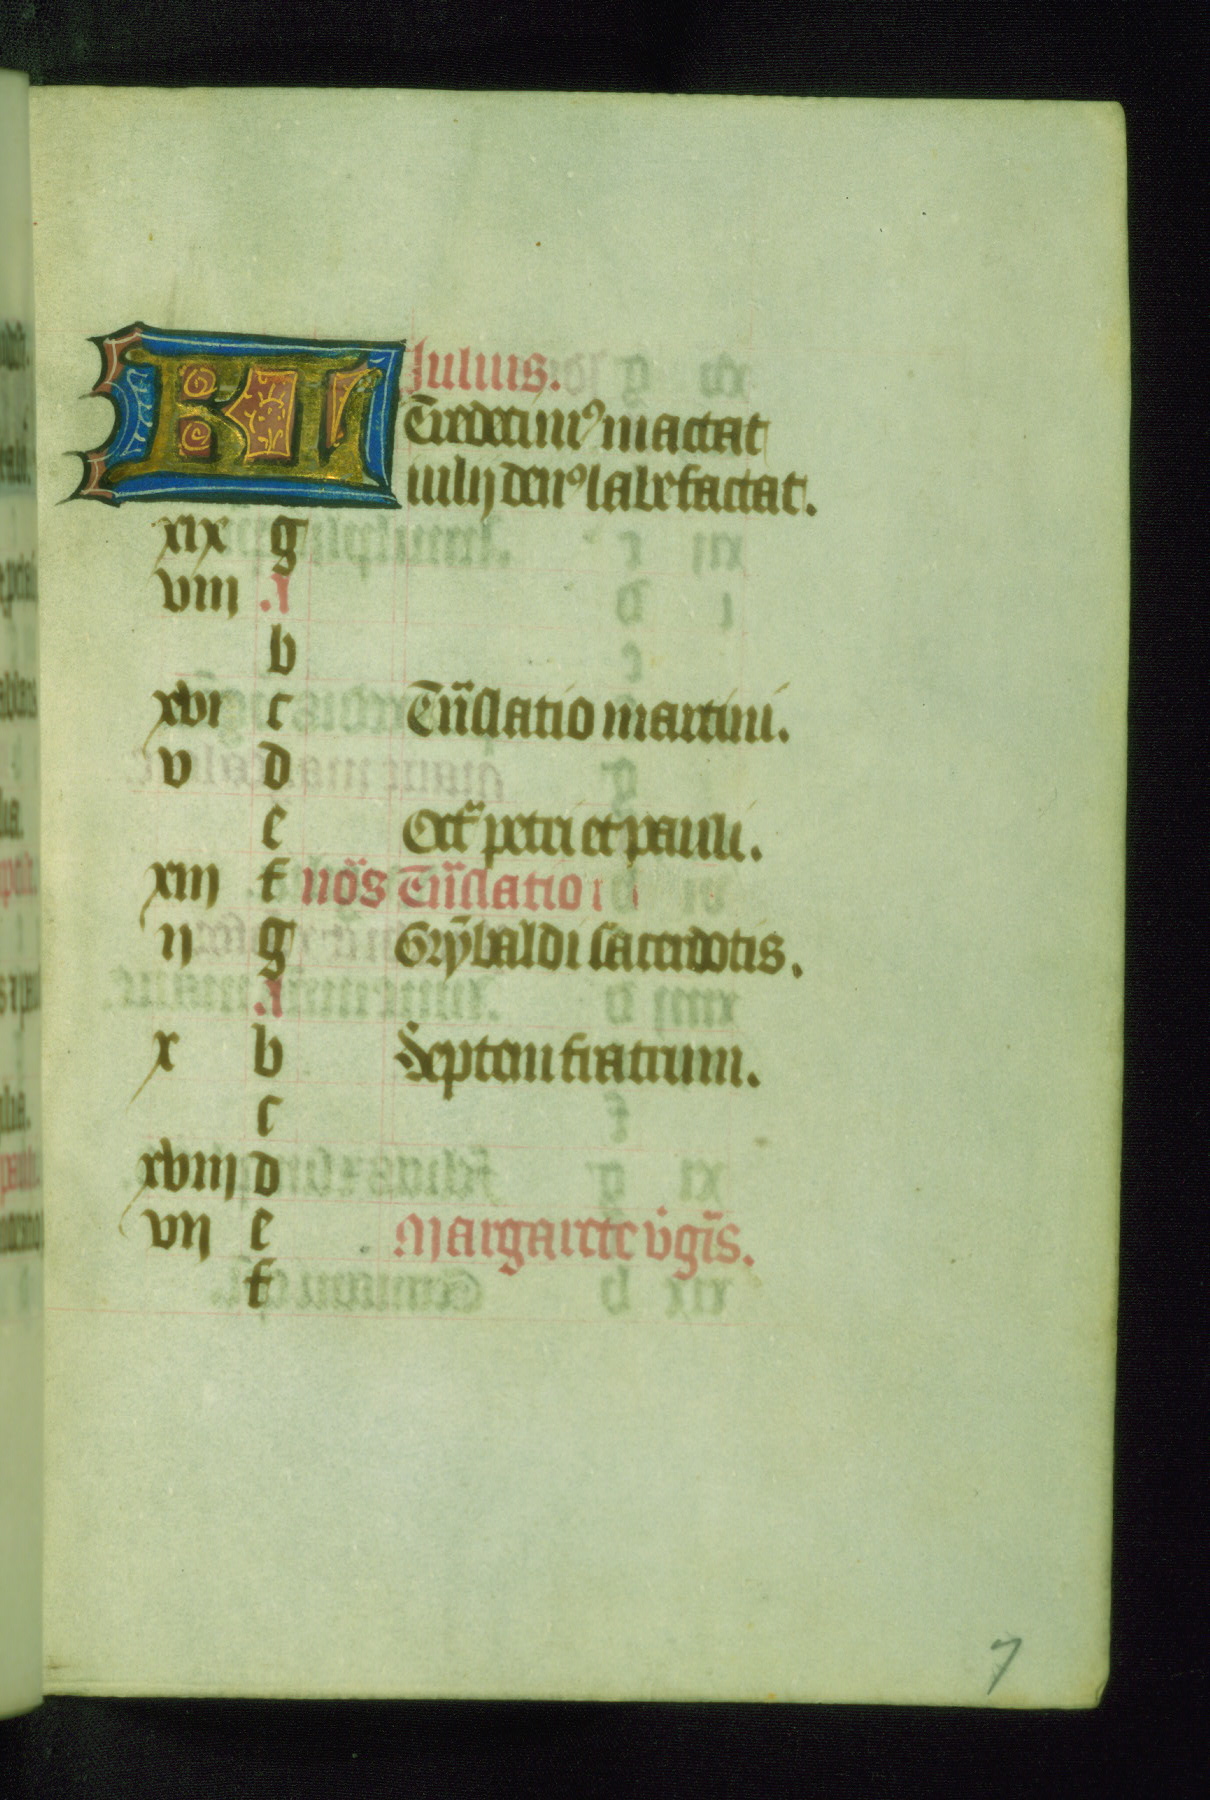 KL Julius.
Tredecimꝰ mactat
iulij denꝰ labefactat.
xix g
viii A.
b
xvi c Trãslatio martini.
v d
e Oct̃ petri et pauli.
xiii f nõs Trãslatio
ii g Grỹbaldi sacerdotis.
A.
x b Septem fratrum.
c
xviii d
vii e Margarete v̾gĩs.
f
7